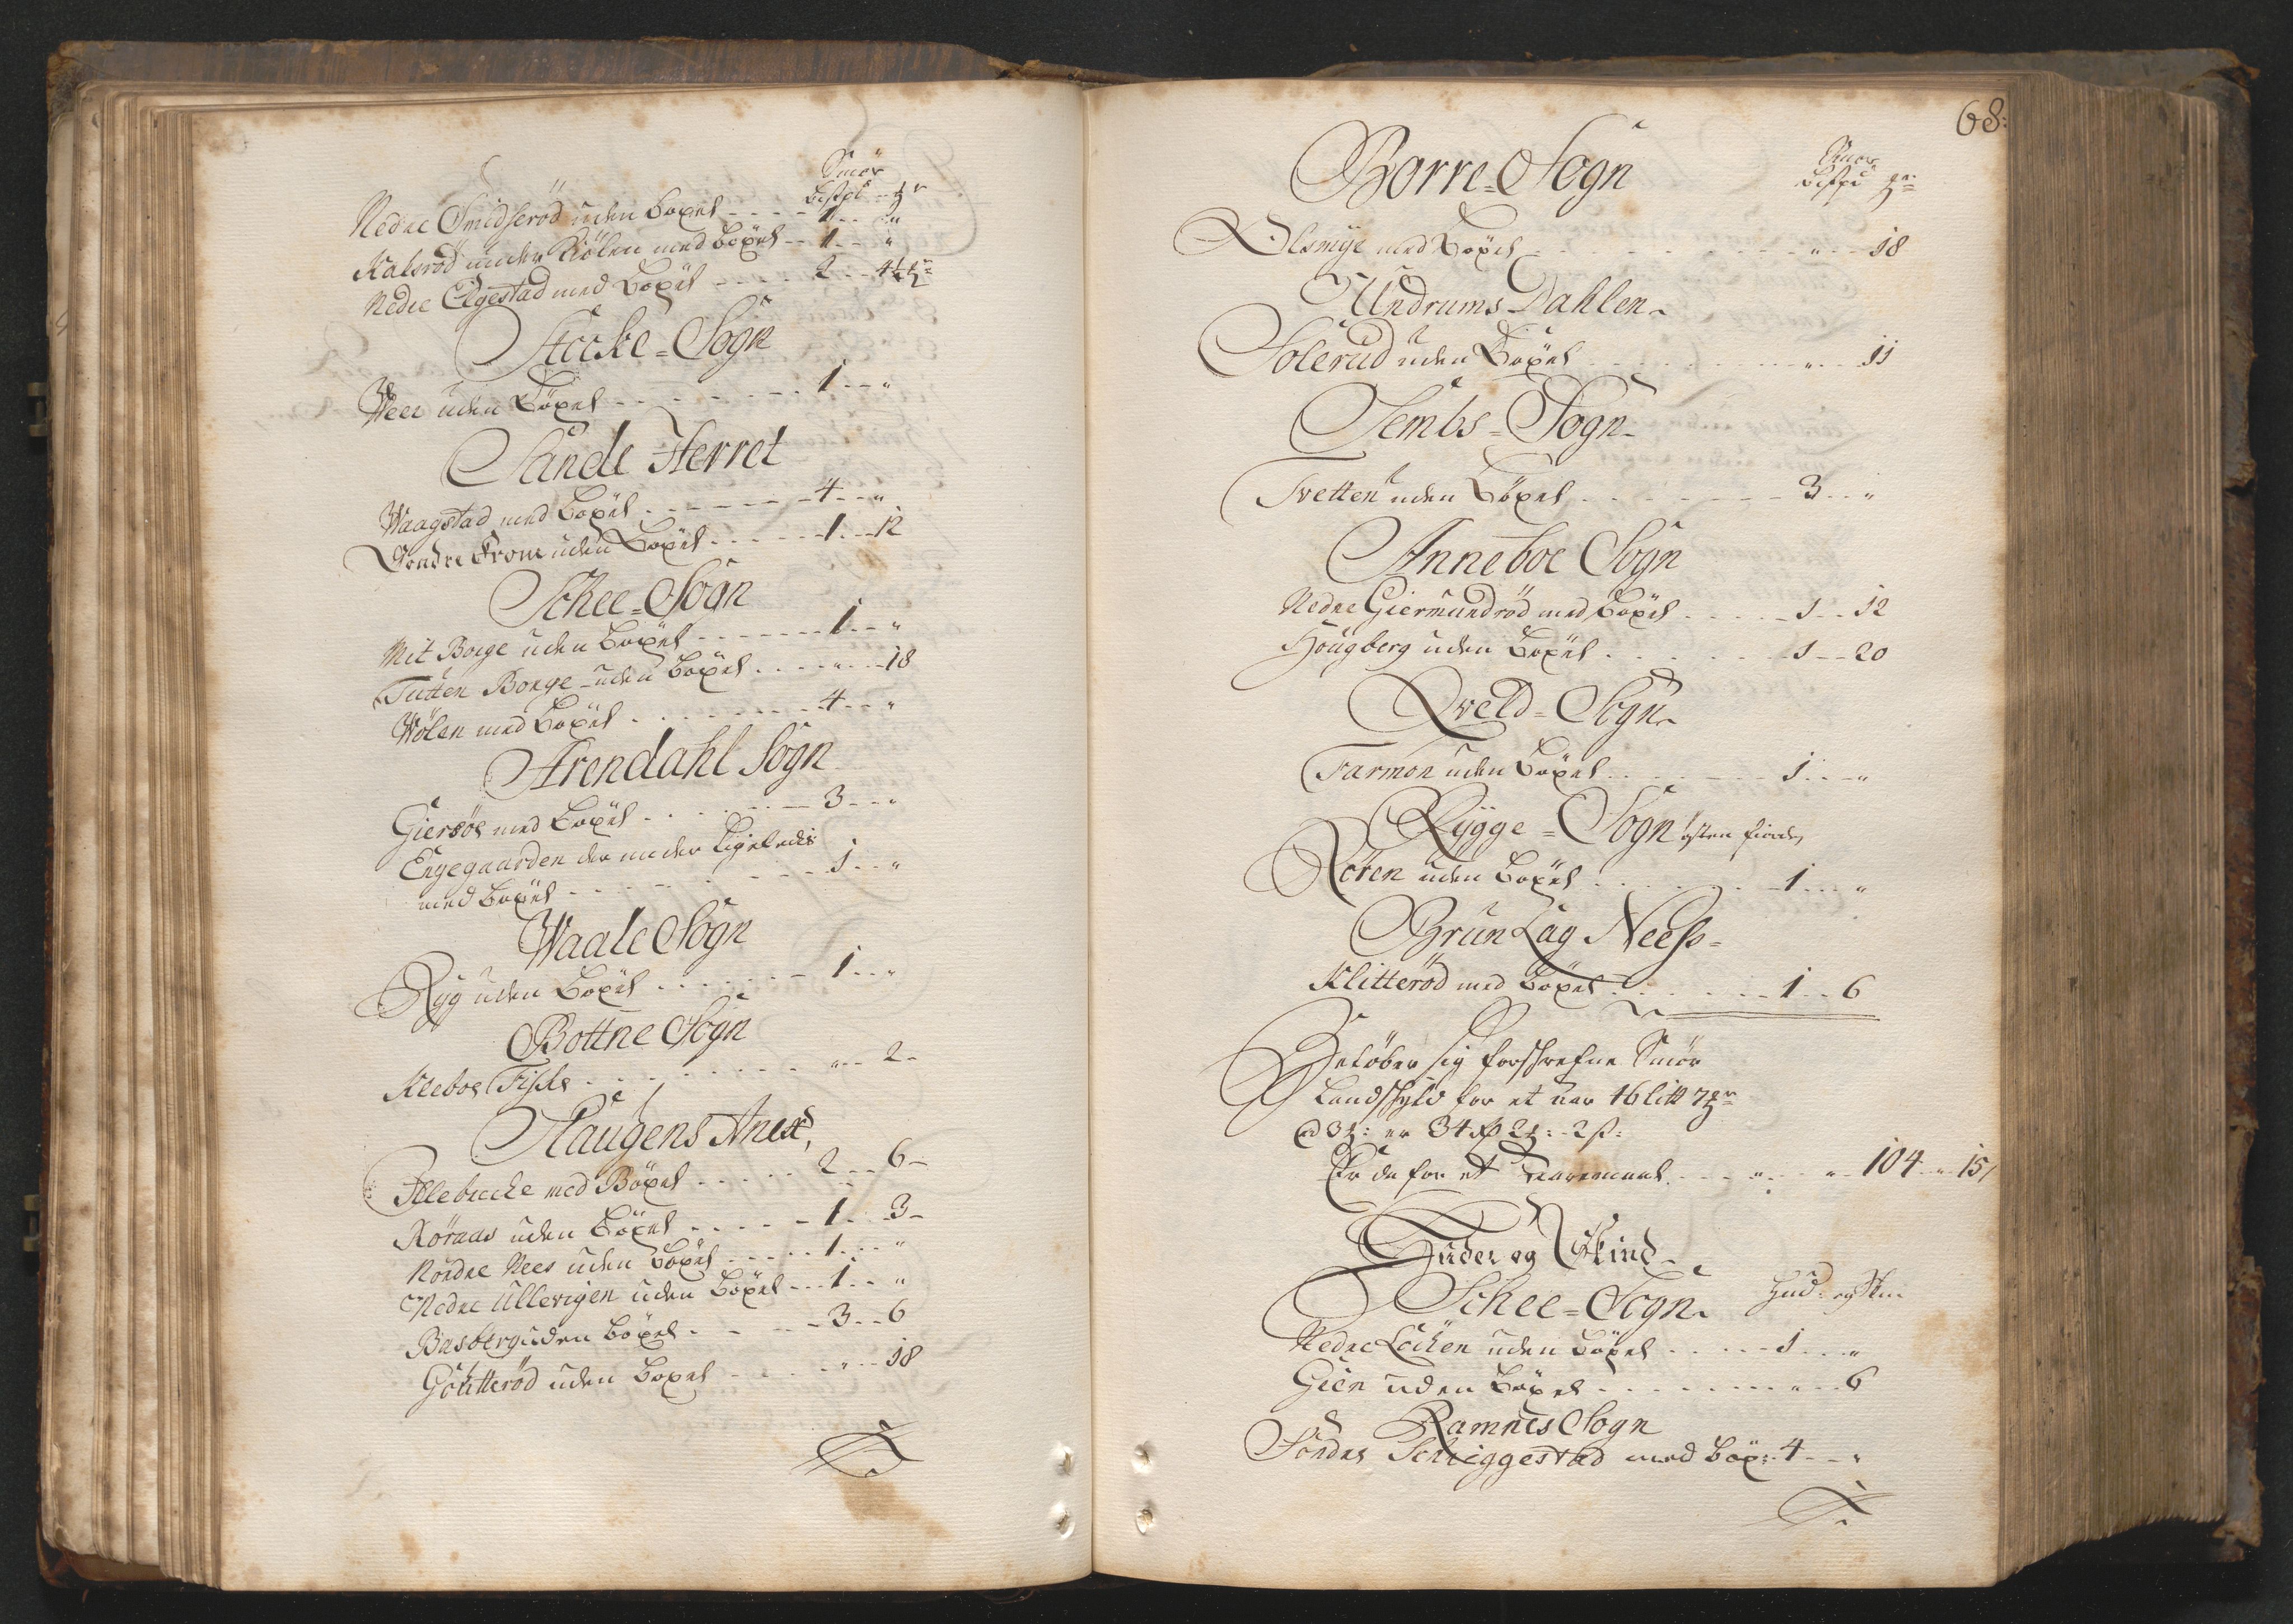 Smör
Bispd
Nedre Smidserød uden Böxel - - - - 1 - - "
Kalsrød under Kiølen med Böxel - - 1 - - "
Nedre Elgestad med Böxel - - - - 2 - - 4½
Stocke = Sogn
Weer uden Böxel - - - - - - - - 1 - - "
Sande Herret
Waagstad med Böxel - - - - - - 4 - - "
From uden Böxel - - - - - 1 - - 12
Schee = Sogn
Mit Borge uden Böxel - - - - - - 1 - - "
Tutten Borge uden Böxel - - - - " - - 18
Wølen med Böxel - - - - - - - 4 - - "
Arendahl Sogn
Giersøe med Böxel - - - - - - 3 - - "
Engegaarden der under Ligeledis
med Böxel - - - - - - - - 1 - - "
Waale Sogn
Ryg uden Böxel - - - - - - 1 - - "
Bottne Sogn
Kleboe Fiske - - - - - - - - " - - 2 -
Slaugens Anex
med Böxel - - - - - 2 - - 6 -
Röraas uden Böxel - - - - - 1 - - 3 -
Nordre Nees uden Böxel - - - - - 1 - - "
Nedre Ullevigen uden Böxel - - 1 - - "
Basberg uden Böxel - - - - 3 - - 6
Göhitterød uden Böxel - - - - " - - 18
68:
Borre = Sogn
Smör
Bispd
med Böxel - - - - - - - - " - - 18
Undrums Dahlen
Solerud uden Böxel - - - - - - - " - - 11
Sembs = Sogn
Tvetten uden Böxel - - - - - - - 3 - - "
Anneboe Sogn
Nedre Giermundrød med Böxel - - - - - 1 - - 12
Hougberg uden Böxel - - - - - - - 1 - - 20
Qveld = Sogn
Farmon uden Böxel - - - - - - - 1 - - "
Rygge = Sogn østen fiorden
Rören uden Böxel - - - - - - - 1 - - "
Brunlag Neess =
Klitterød med Böxel - - - - - - - 1 - - 6
Beløber sig forschrefne Smör
Landskyld for et aar 16
er 34
Er da for et - - - - " - - 104 - - 15
Huder og Skind
Schee = Sogn
Hud: og Skin
Nedre Löcken uden Böxel - - - - 1 - - "
Gien uden Böxel - - - - - - - " - - 6
Ramnes Sogn
Söndre Schiggestad med Böx: 4 - - "